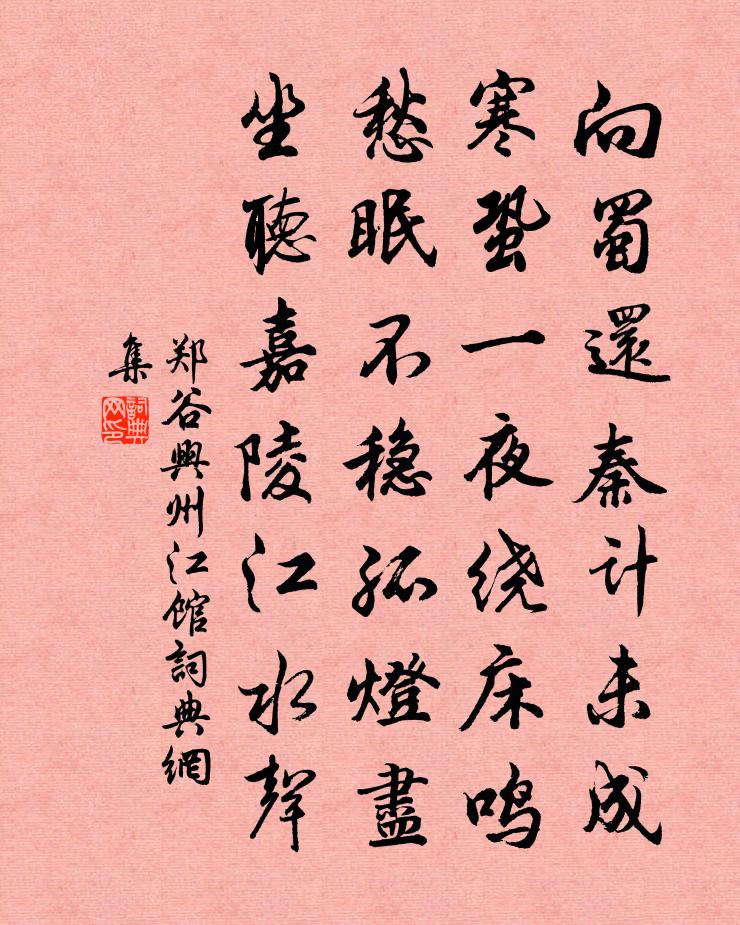 向蜀還秦计未成
寒蛩一夜绕床鸣
愁眠不稳孤燈盡
坐聽嘉陵江水聲
郑谷興州江馆詞典網
集
詞典
网印